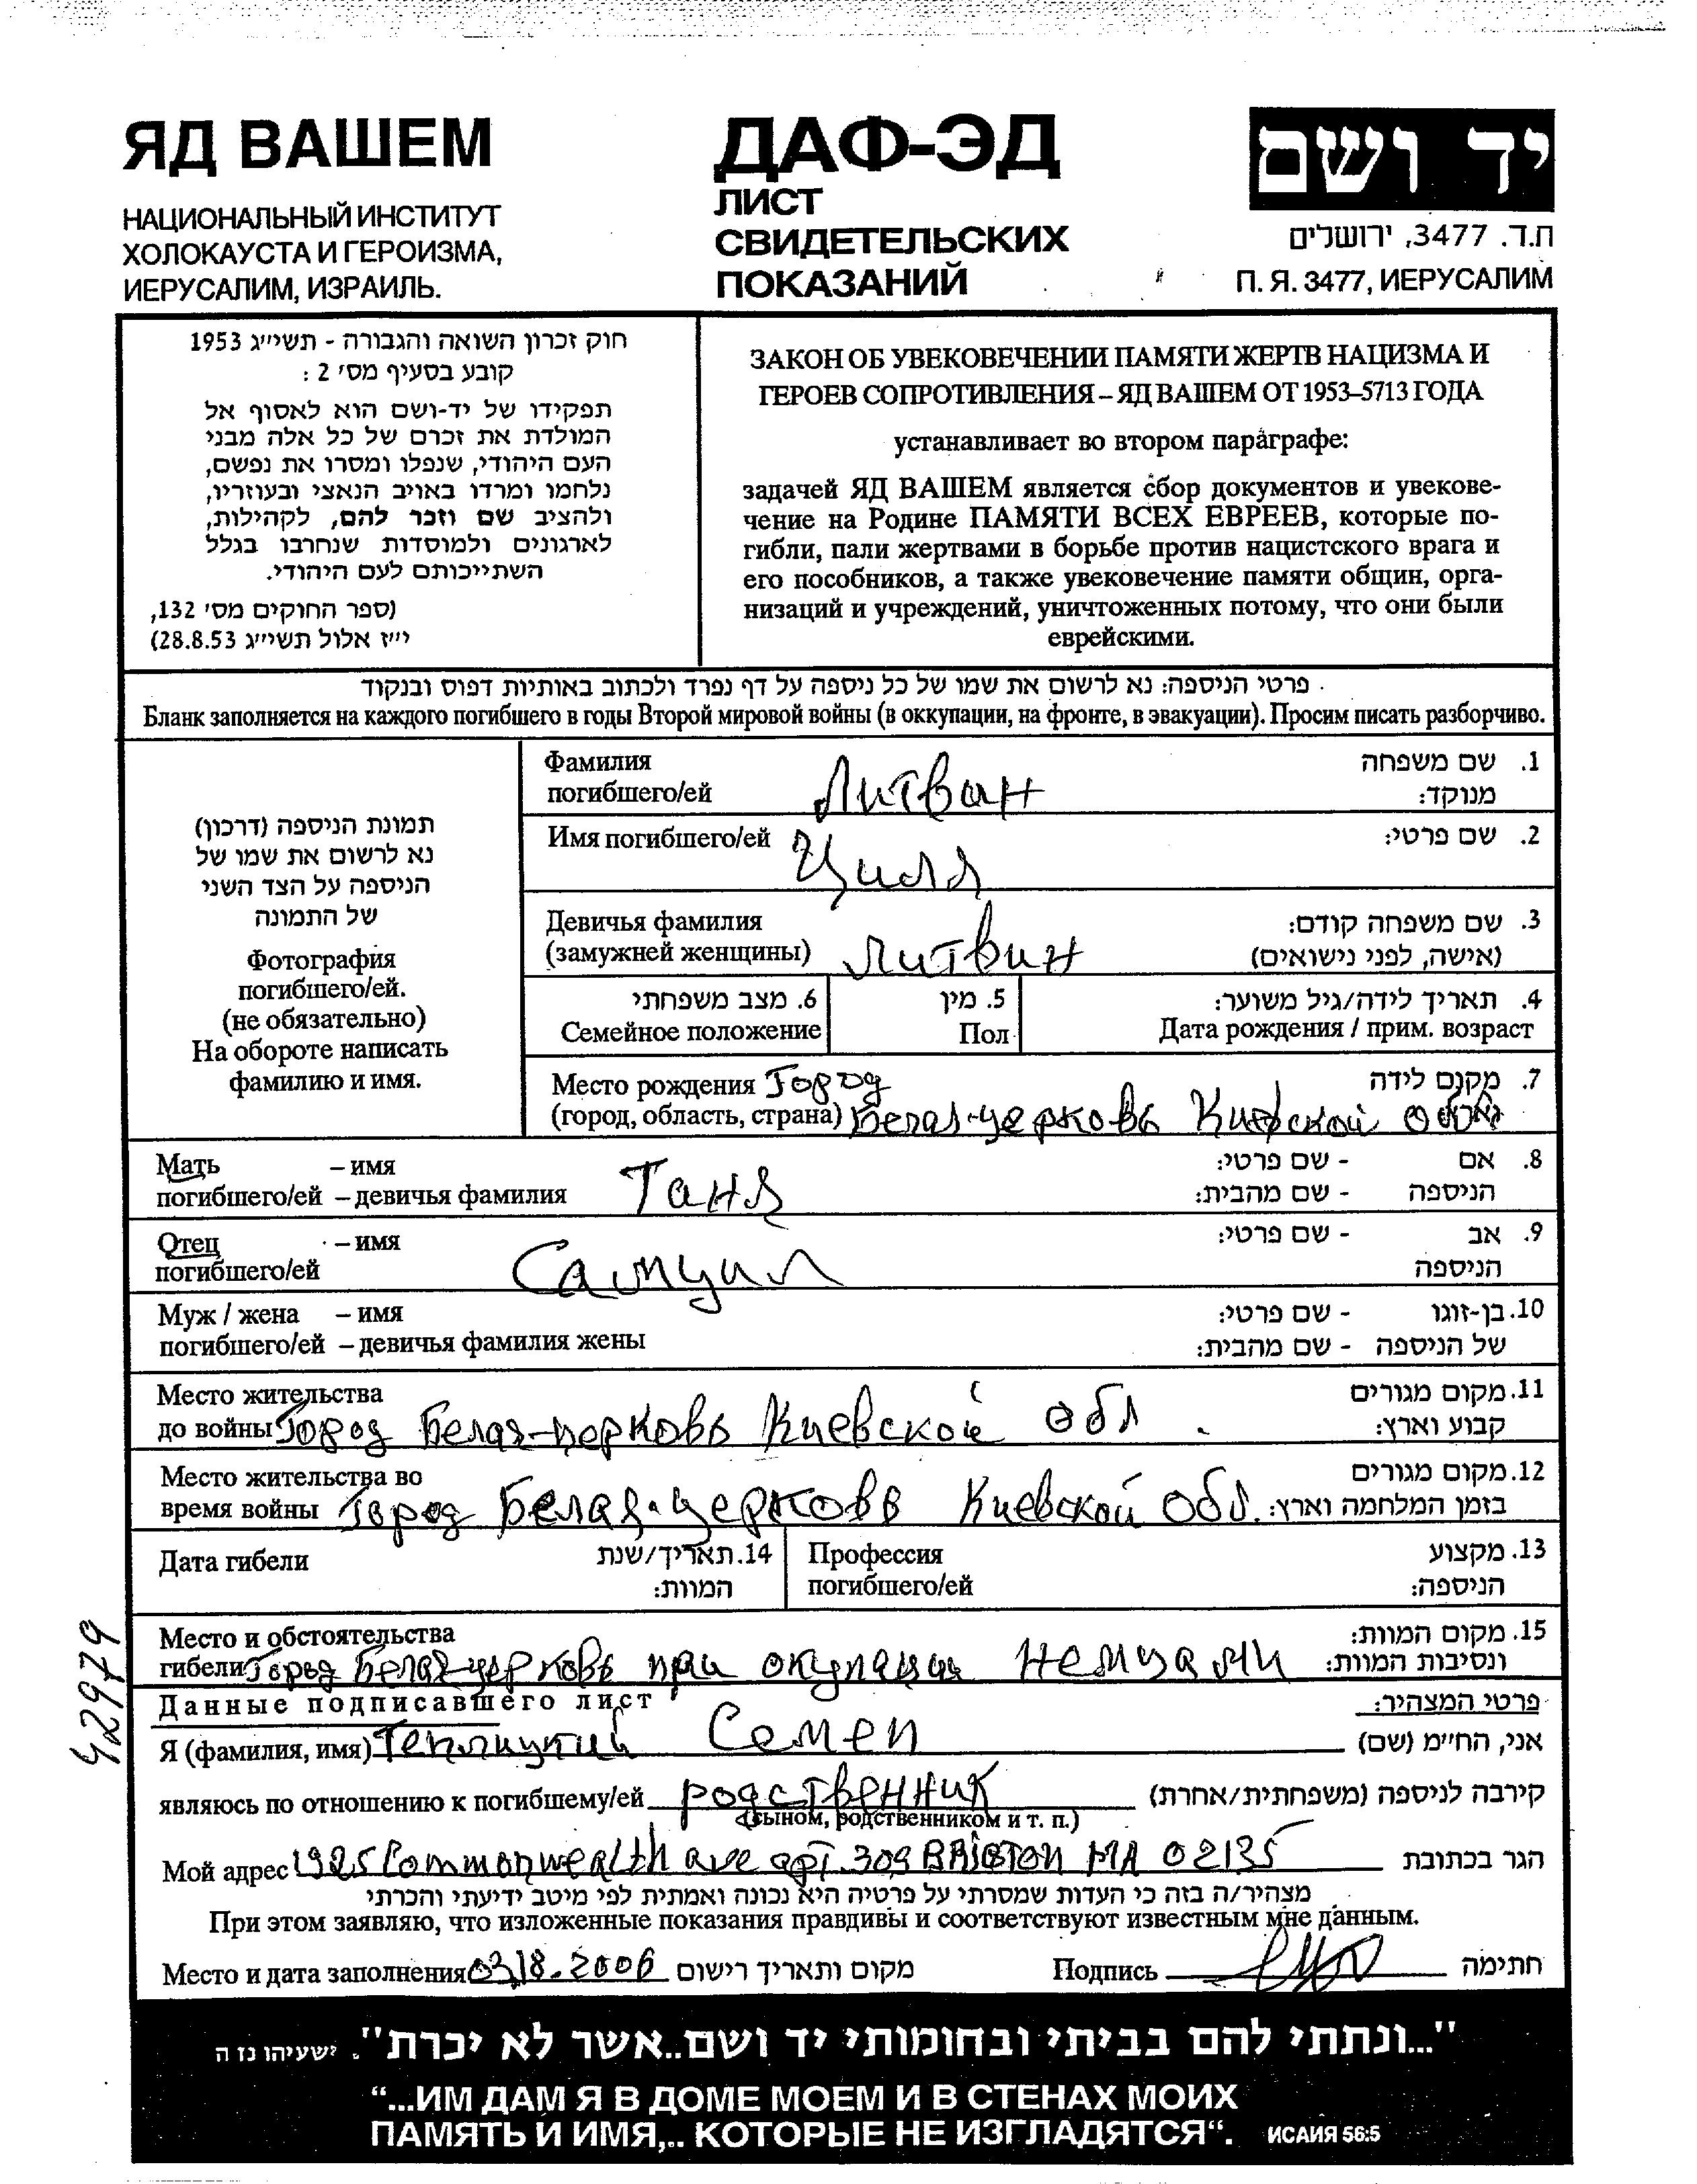 ЯД ВАШЕМ
НАЦИОНАЛЬНЫЙ ИНСТИТУТ
ХОЛОКАУСТА И ГЕРОИЗМА,
ИЕРУСАЛИМ, ИЗРАИЛЬ.
ДАФ-ЭД
ЛИСТ
СВИДЕТЕЛЬСКИХ
ПОКАЗАНИЙ
יד ושם
ת.ד. 3477, ירושלים
П. Я. 3477, ИЕРУСАЛИМ
חוק זכרון השואה והגבורה - תשי״ג 1953
קובע בסעיף מס׳ 2 :
תפקידו של יד-ושם הוא לאסוף אל
המולדת את זכרם של כל אלה מבני
העם היהודי, שנפלו ומסרו את נפשם,
נלחמו ומרדו באויב הנאצי ובעוזריו,
ולהציב שם וזכר להם, לקהילות,
לארגונים ולמוסדות שנחרבו בגלל
השתייכותם לעם היהודי.
(ספר החוקים מס׳ 132,
י״ז אלול תשי״ג 28.8.53)
ЗАКОН ОБ УВЕКОВЕЧЕНИИ ПАМЯТИ ЖЕРТВ НАЦИЗМА И
ГЕРОЕВ СОПРОТИВЛЕНИЯ – ЯД ВАШЕМ ОТ 1953–5713 ГОДА
устанавливает во втором параграфе:
задачей ЯД ВАШЕМ является сбор документов и увекове-
чение на Родине ПАМЯТИ ВСЕХ ЕВРЕЕВ, которые по-
гибли, пали жертвами в борьбе против нацистского врага и
его пособников, а также увековечение памяти общин, орга-
низаций и учреждений, уничтоженных потому, что они были
еврейскими.
פרטי הניספה: נא לרשום את שמו של כל ניספה על דף נפרד ולכתוב באותיות דפוס ובנקוד
Бланк заполняется на каждого погибшего в годы Второй мировой войны (в оккупации, на фронте, в эвакуации). Просим писать разборчиво.
תמונת הניספה (דרכון)
נא לרשום את שמו של
הניספה על הצד השני
של התמונה
Фотография
погибшего/ей.
(не обязательно)
На обороте написать
фамилию и имя.
Фамилия 1. שם משפחה
погибшего/ей Литван מנוקד:
Имя погибшего/ей Циля 2. שם פרטי:
Девичья фамилия 3. שם משפחה קודם:
(замужней женщины) Литвин (אישה, לפני נישואים)
6. מצב משפחתי 5. מין 4. תאריך לידה/גיל משוער:
Семейное положение Пол Дата рождения / прим. возраст
Место рождения Город 7. מקום לידה
(город, область, страна) Белая-церковь Киевской обл. וארץ
Мать – имя 8. אם - שם פרטי:
погибшего/ей – девичья фамилия Таня הניספה - שם מהבית:
Отец – имя 9. אב - שם פרטי:
погибшего/ей Самуил הניספה
Муж / жена – имя 10. בן-זוגו - שם פרטי:
погибшего/ей – девичья фамилия жены של הניספה - שם מהבית:
Место жительства 11. מקום מגורים
до войны Город Белая-церковь Киевской обл. קבוע וארץ:
Место жительства во 12. מקום מגורים
время войны Город Белая-церковь Киевской Обл. בזמן המלחמה וארץ:
Дата гибели 14. תאריך/שנת Профессия 13. מקצוע
המוות: погибшего/ей הניספה:
Место и обстоятельства 15. מקום המוות:
гибели Город Белая-церковь при окупация немцами ונסיבות המוות:
Данные подписавшего лист פרטי המצהיר:
Я (фамилия, имя) Теплицкий Семен אני, הח״מ (שם)
являюсь по отношению к погибшему/ей родственник קירבה לניספה (משפחתית/אחרת)
(сыном, родственником и т. п.)
Мой адрес 1925 Commonwealth ave apt. 309 BRIGTON MA 02135 הגר בכתובת
מצהיר/ה בזה כי העדות שמסרתי על פרטיה היא נכונה ואמתית לפי מיטב ידיעתי והכרתי
При этом заявляю, что изложенные показания правдивы и соответствуют известным мне данным.
Место и дата заполнения 03.18.2006 מקום ותאריך רישום Подпись חתימה
42979
"...ונתתי להם בביתי ובחומותי יד ושם..אשר לא יכרת". ישעיהו נז ה
“...ИМ ДАМ Я В ДОМЕ МОЕМ И В СТЕНАХ МОИХ
ПАМЯТЬ И ИМЯ,.. КОТОРЫЕ НЕ ИЗГЛАДЯТСЯ“. ИСАИЯ 56:5